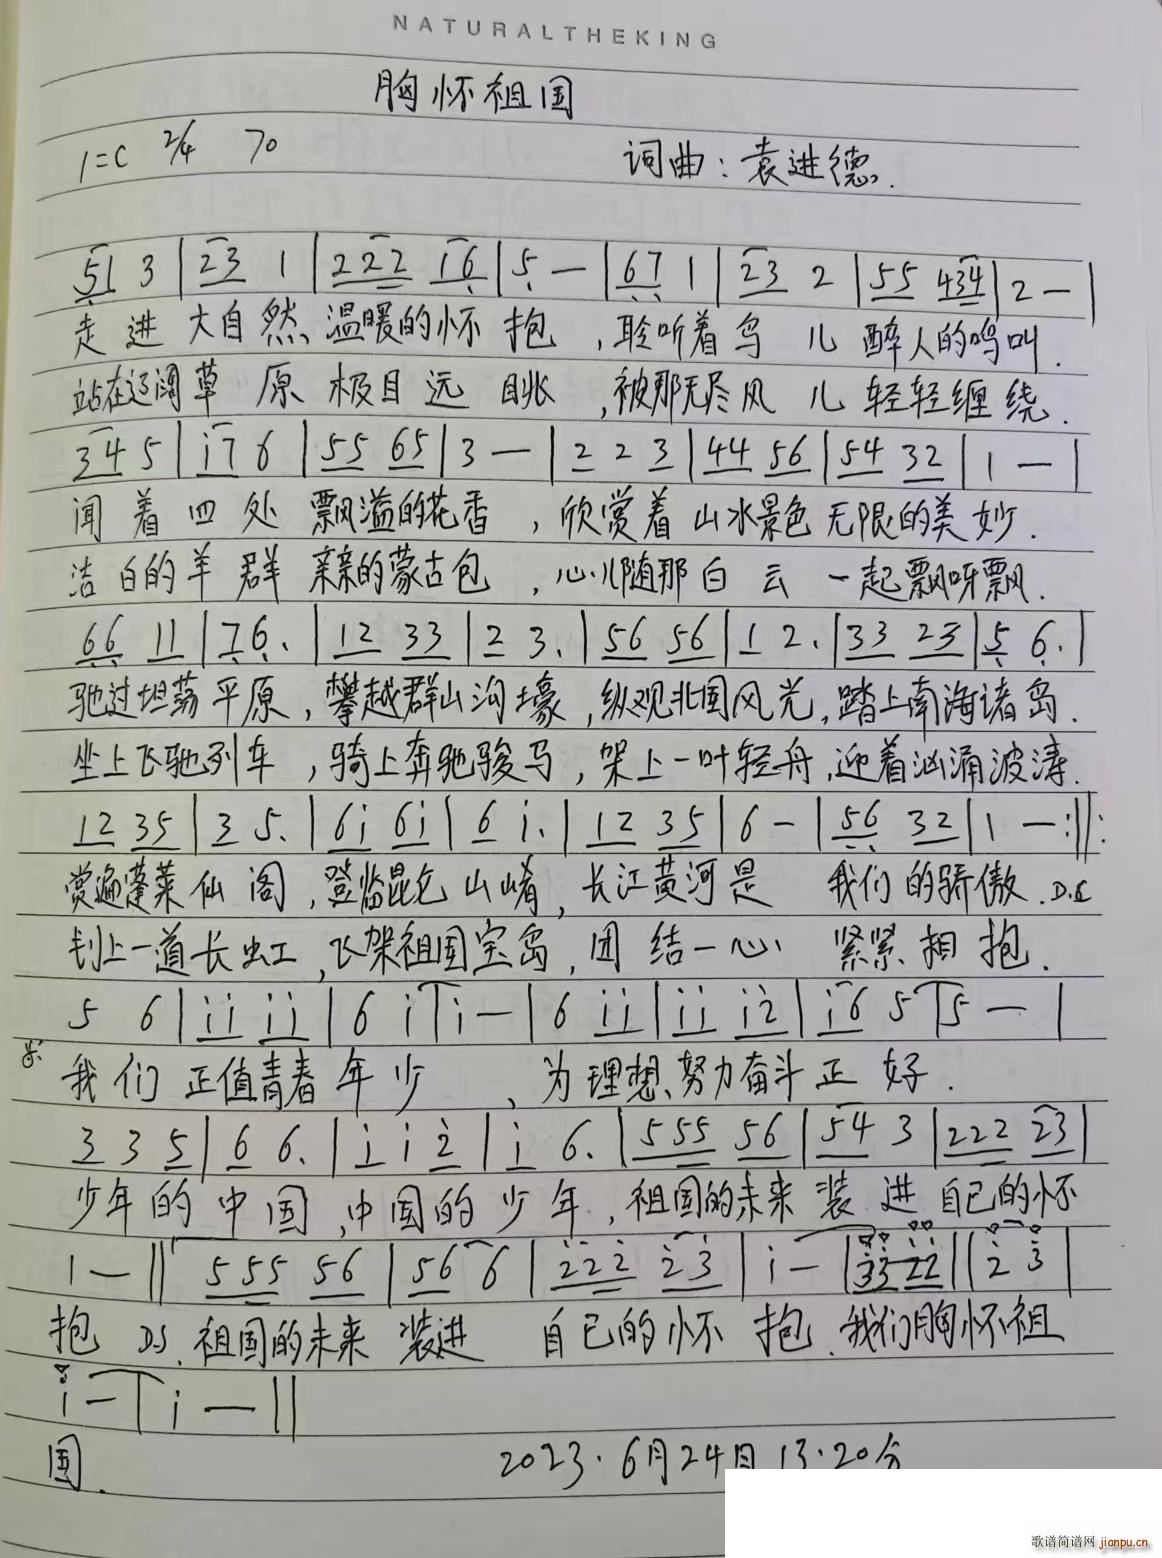 NATURALTHEKING
胸怀祖国
1=C 2/4 70 词曲：袁进德.
51 3 | 23 1 | 222 16 | 5 — | 67 1 | 23 2 | 55 434 | 2 — |
走进大自然温暖的怀抱，聆听着鸟儿醉人的鸣叫.
站在辽阔草原极目远眺，被那无尽风儿轻轻缠绕.
34 5 | i7 6 | 55 65 | 3 — | 2 2 3 | 44 56 | 54 32 | 1 — |
闻着四处飘溢的花香，欣赏着山水景色无限的美妙.
洁白的羊群亲亲的蒙古包，心儿随那白云一起飘呀飘.
66 11 | 76. | 12 33 | 2 3. | 56 56 | 1 2. | 33 23 | 5 6. |
驰过坦荡平原，攀越群山沟壕，纵观北国风光，踏上南海诸岛.
坐上飞驰列车，骑上奔驰骏马，架上一叶轻舟，迎着汹涌波涛.
12 35 | 3 5. | 6i 6i | 6 i. | 12 35 | 6 — | 56 32 | 1 — :||
赏遍蓬莱仙阁，登临昆仑山嵴，长江黄河是我们的骄傲. D.C
钊上一道长虹，飞架祖国宝岛，团结一心紧紧相抱.
5 6 | ii ii | 6 i | i — | 6 ii | ii i2 | i6 5 | 5 — |
我们正值青春年少，为理想、努力奋斗正好.
3 3 5 | 6 6. | i i 2 | i 6. | 555 56 | 54 3 | 222 23 |
少年的中国，中国的少年，祖国的未来装进自己的怀
1 — || 555 56 | 56 6 | 222 23 | i — | 33 22 || 2 3 |
抱 D.S. 祖国的未来装进自己的怀抱.我们胸怀祖
i — | i — ||
国.
2023.6月24日13.20分
歌谱简谱网 jianpu.cn